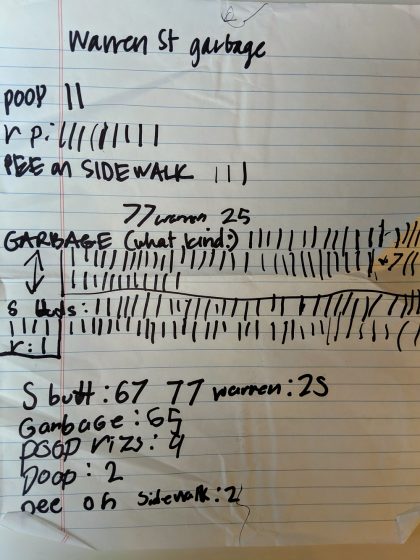 Warren St garbage
POOP ||
r p: ||||||||||
PEE on SIDEWALK |||
77 warren 25
GARBAGE (what kind?)
s butts:
r: |
S butt: 67 77 warren: 25
Garbage: 65
poop rizs: 9
poop: 2
pee on sidewalk: 2